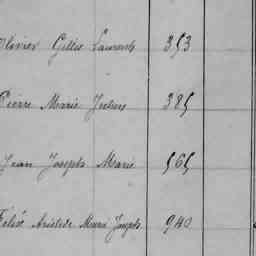 Olivier Gilles Laurent 353
Pierre Marie Julien 385
Jean Joseph Marie 565
Félix Aristide Marie Joseph 940